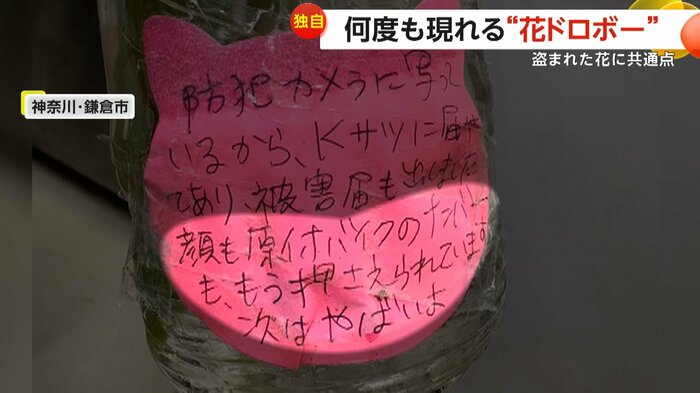 独自
何度も現れる“花ドロボー”
盗まれた花に共通点
神奈川・鎌倉市
防犯カメラに写って
いるから、Kサツに届け
てあり、被害届も出しました
顔も原付バイクのナンバー
も、もう押さえられています
次はやばいよ